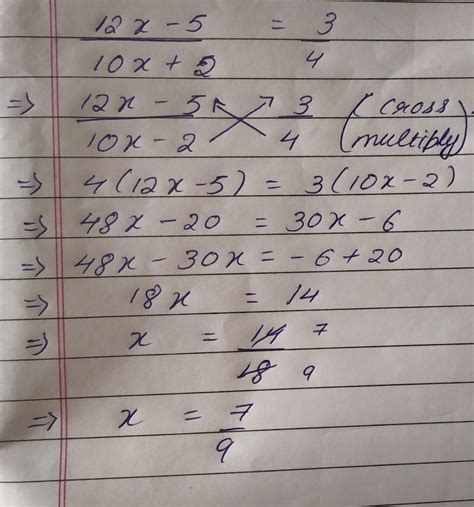 12x - 5 / 10x + 2 = 3 / 4
⇒ 12x - 5 / 10x - 2 3 / 4 (cross multiply)
⇒ 4(12x-5) = 3(10x-2)
⇒ 48x - 20 = 30x - 6
⇒ 48x - 30x = - 6 + 20
⇒ 18x = 14
⇒ x = 14 7 / 18 9
⇒ x = 7 / 9